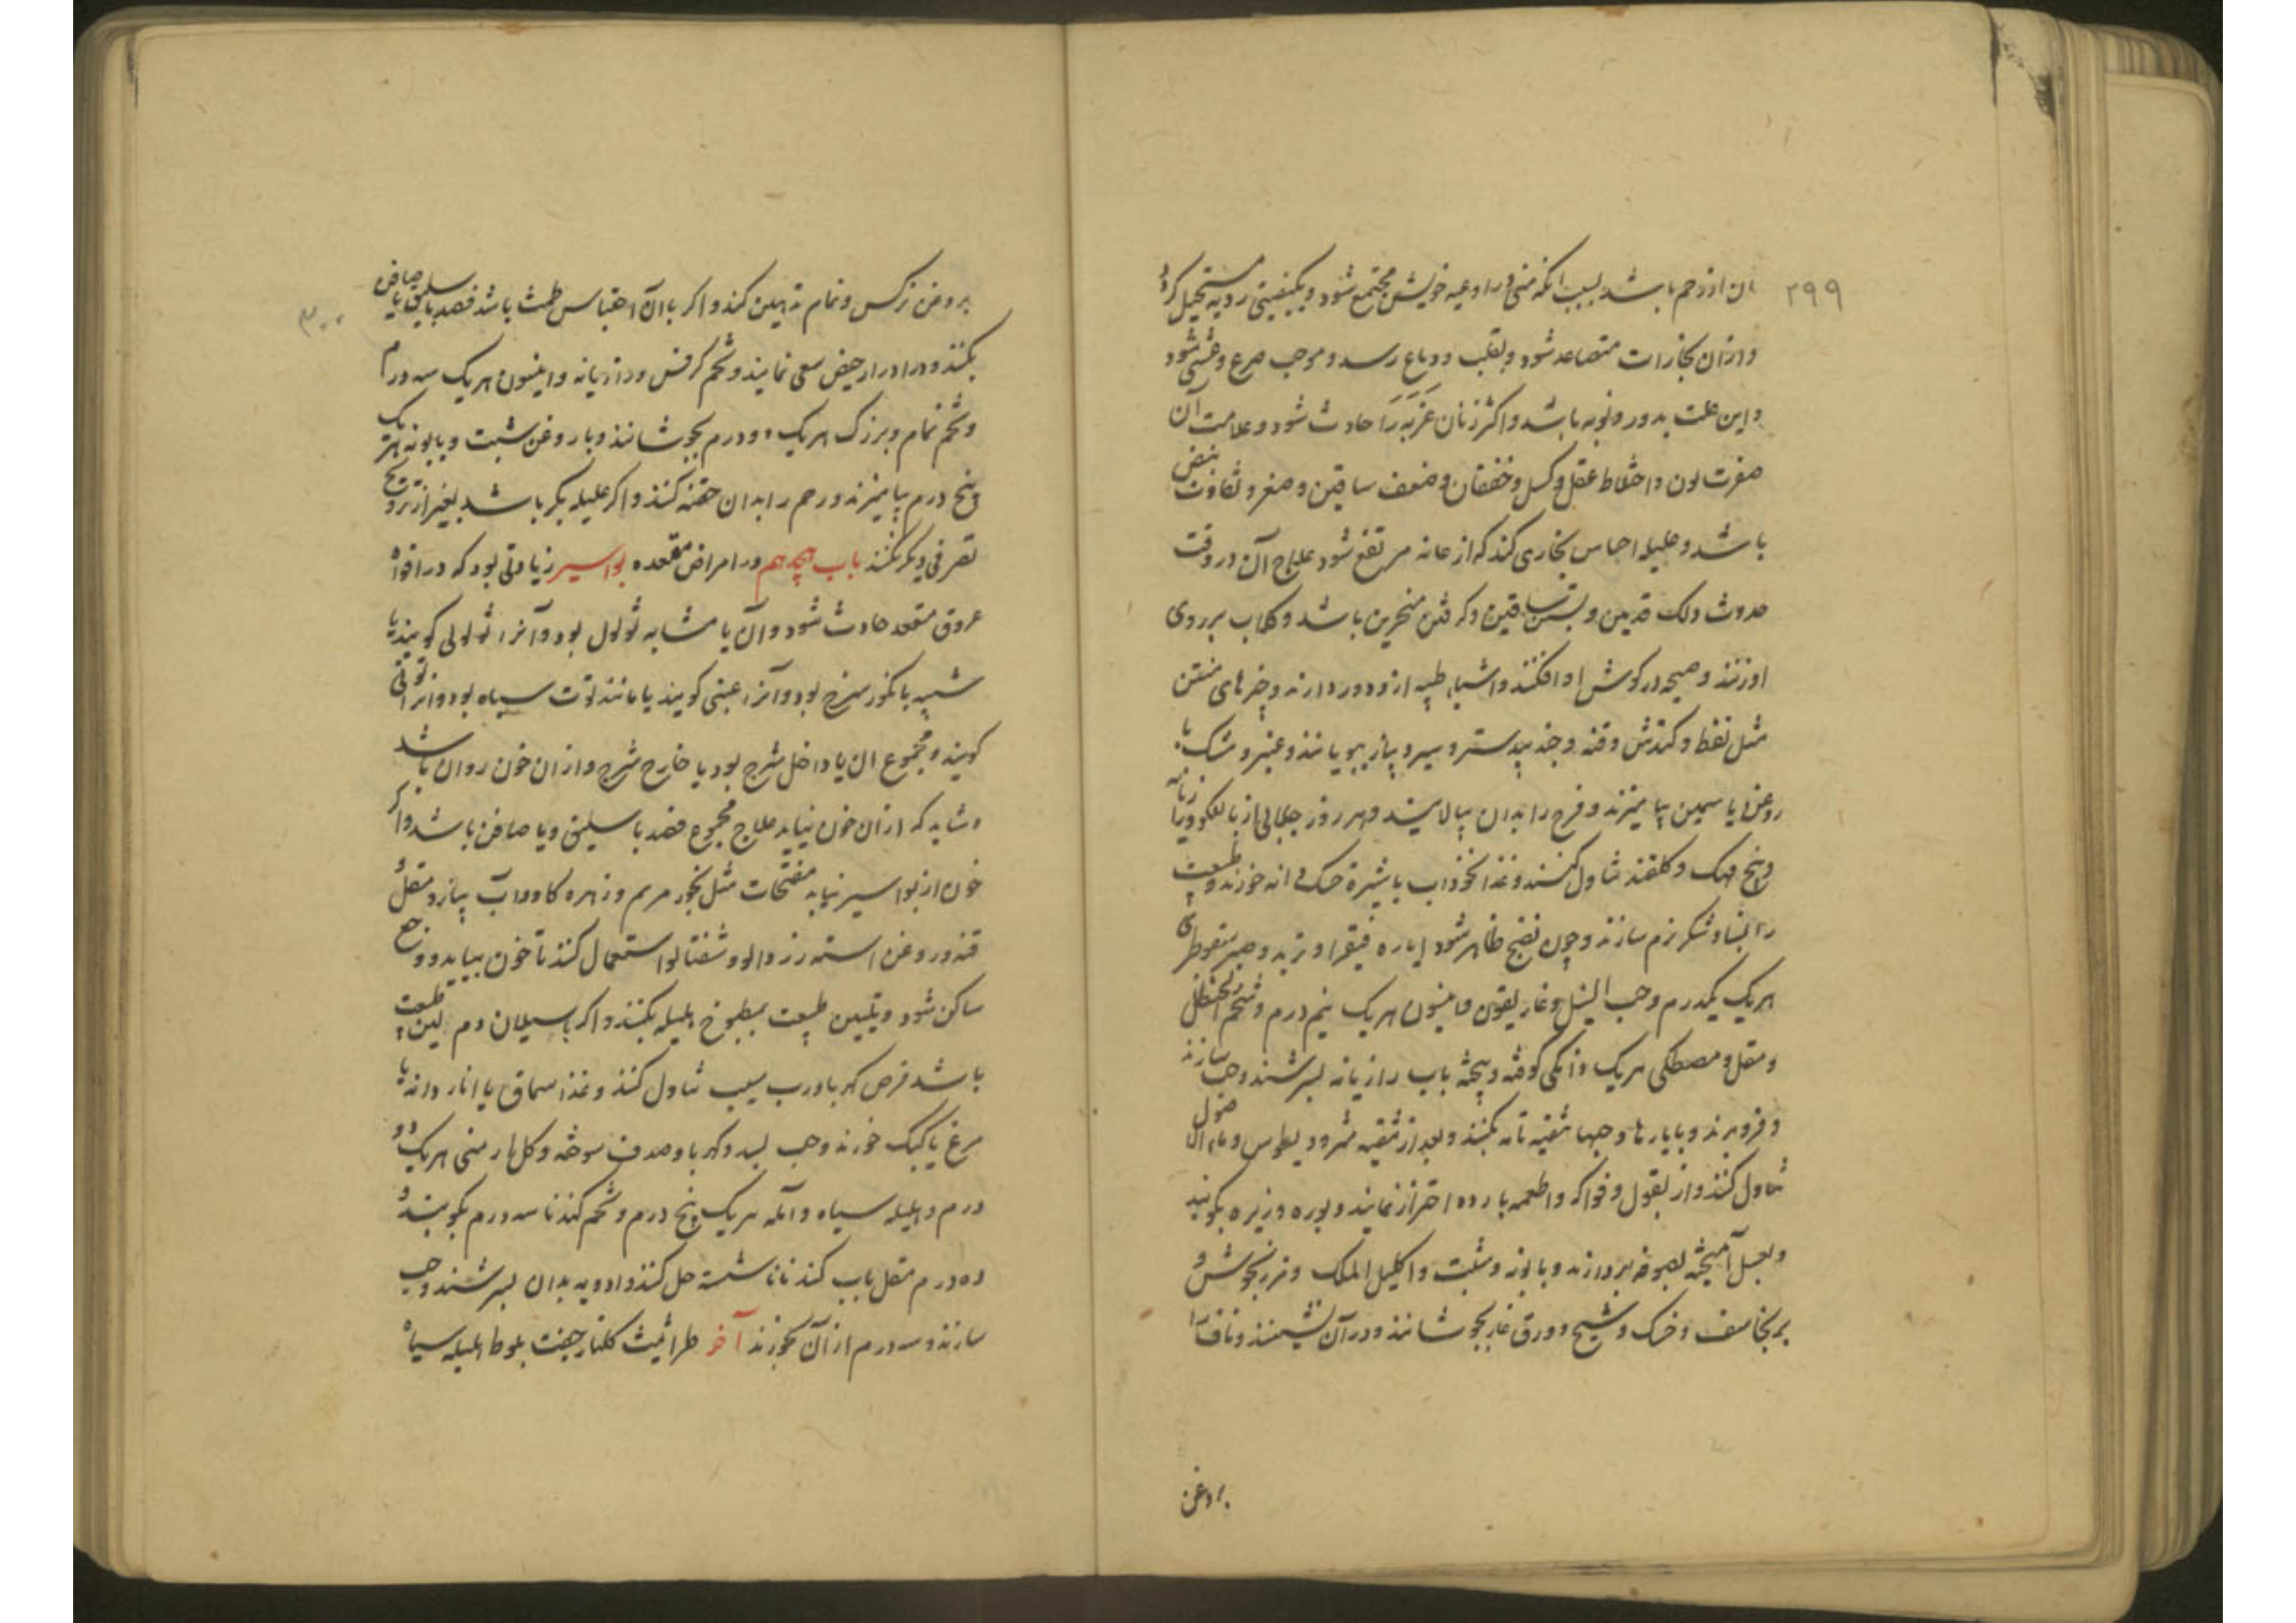 ۲۹۹
ان از رحم باشد بسبب انکه منی در اوعیه خویش مجتمع شود و بکیفیتی ردیه مستحیل کردد
و ازان بخارات متصاعد شود و بقلب و دماغ رسد و موجب صرع و غشی شود
و این علت بدور و نوبه باشد و اکثر زنان عزبه را حادث شود و علامت آن
صفرت لون و اختلاط عقل و کسل و خفقان و ضعف ساقین و صغر و تفاوت نبض
باشد و علیله احساس بخاری کند که از عانه مرتفع شود علاج آن در وقت
حدوث دلک قدمین و بستن ساقین و کرفتن منخرین باشد و کلاب بر روی
او زنند و صیحه در کوش او افکنند و اشیاء طیبه ازو دور دارند و چیزهای منتن
مثل نفط و کندش و قنه و جندبیدستر و سیر و پیاز ببویانند و عنبر و مشک با
روغن یاسمین بیامیزند و فرج را بدان بیالایند و هر روز جلابی از بالنکو و رازیانه
و بیخ مهک و کلقند تناول کنند و غذا نخوداب با شیره خسک دانه خورند و طبیعت
را بشاف شکر نرم سازند و چون نضج ظاهر شود ایاره فیقرا و تربد و صبر سقوطری
هریک یکدرم و حب النیل و غاریقون و انیسون هریک نیم درم و شحم الحنظل
و مقل و مصطکی هریک دانکی کوفته و بیخته باب رازیانه بسرشند و حب سازند
و فرو برند و بایارها و حبها تنقیه تامه بکنند و بعد از تنقیه مثرودیطوس و ماء الاصول
تناول کنند و از بقول و فواکه و اطعمه بارده احتراز نمایند و بوره و زیره بکوبند
و بعسل آمیخته بصوفه بردارند و بابونه و شبت و اکلیل الملک و مرزنجوش و
برنجاسف و خسک و شیح و ورق غار بجوشانند و در آن نشینند و ناف را
بروغن
۳۰۰
بروغن نرکس و نمام تدهین کنند و اکر با آن احتباس طمث باشد فصد باسلیق یا صافن
بکنند و در ادرار حیض سعی نمایند و تخم کرفس و رازیانه و انیسون هریک سه درم
و تخم نمام و برزک هریک دو درم بجوشانند و با روغن شبت و بابونه هریک
پنج درم بیامیزند و رحم را بدان حقنه کنند و اکر علیله بکر باشد بغیر از تزویج
تصرفی دیکر نکنند باب هجدهم در امراض مقعده بواسیر زیادتی بود که در افواه
عروق مقعد حادث شود و آن یا مشابه ثولول بود و آنرا ثولولی کویند یا
شبیه بانکور سرخ بود و آنرا عنبی کویند یا مانند توت سیاه بود و آنرا توتی
کویند و مجموع ان یا داخل شرج بود یا خارج شرج و ازان خون روان باشد
و شاید که ازان خون نیاید علاج مجموع فصد باسلیق و یا صافن باشد و اکر
خون از بواسیر نیاید مفتحات مثل بخور مریم و زهره کاو و آب پیاز و مقل و
قنه و روغن استه زردالو و شفتالو استعمال کنند تا خون بیاید و وجع
ساکن شود و تلیین طبیعت بمطبوخ هلیله بکنند و اکر با سیلان دم لین طبیعت
باشد قرص کهربا و رب سیب تناول کنند و غذا سماق یا اناردانه با
مرغ یا کبک خورند و حب بسد و کهربا و صدف سوخته و کل ارمنی هریک دو
درم و هلیله سیاه و آمله هریک پنج درم و تخم کندنا سه درم بکوبند و
ده درم مقل باب کندنا ناشسته حل کنند و ادویه بدان بسرشند و حب
سازند و سه درم از آن بخورند آخر طراثیث کلنار جفت بلوط هلیله سیاه